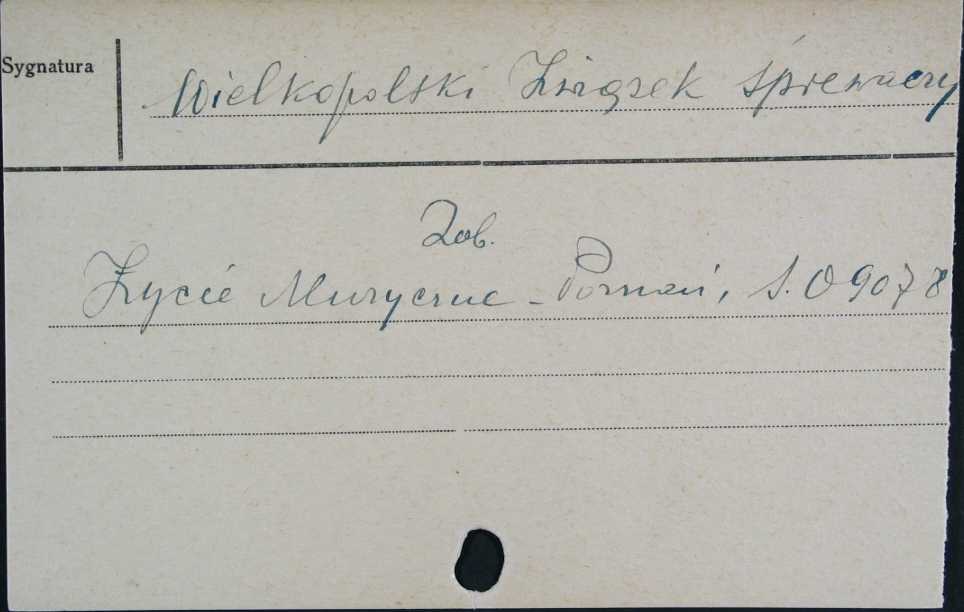 Sygnatura
Wielkopolski Związek Śpiewaczy
Zob.
Życie Muzyczne - Poznań, S. O 9078